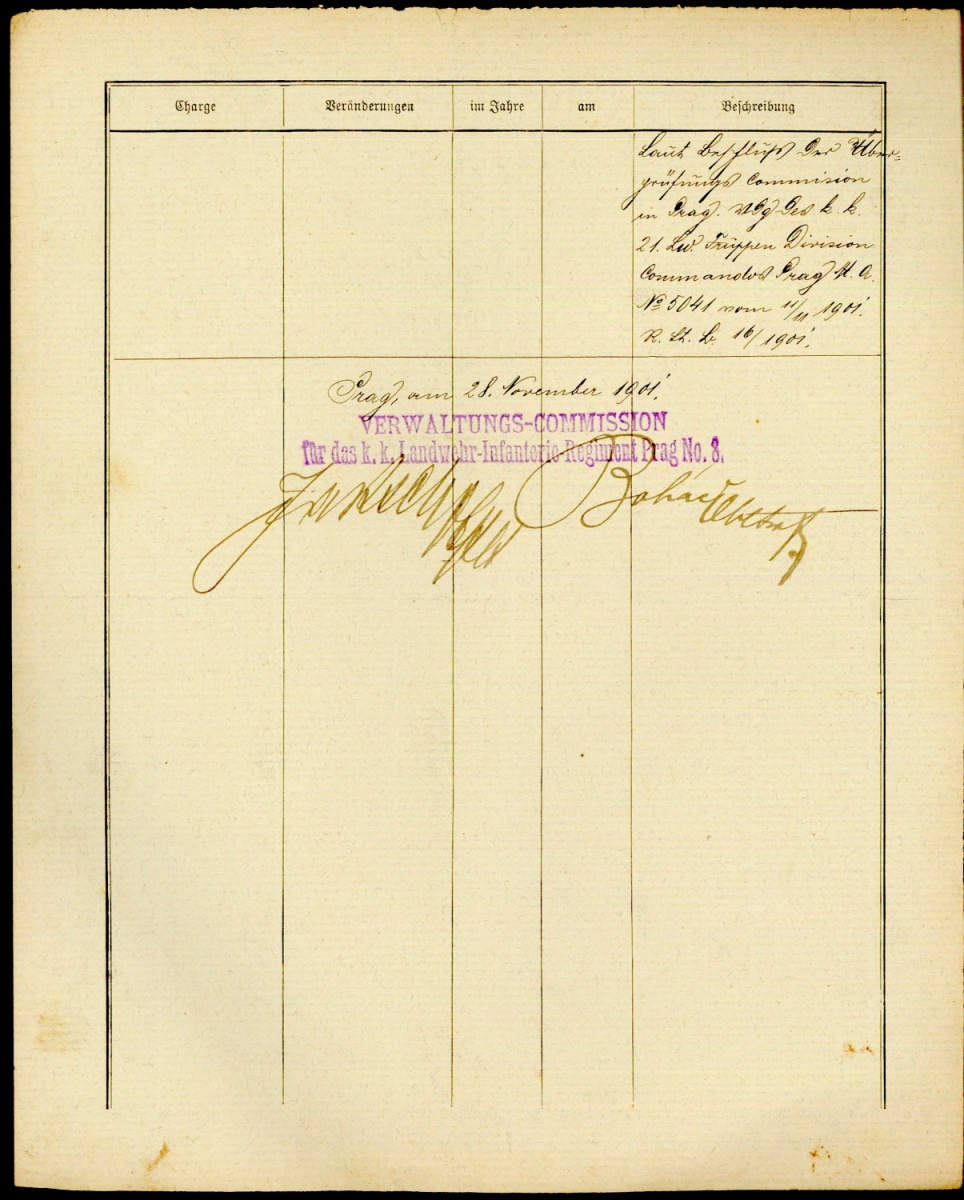 Charge Veränderungen im Jahre am Beschreibung
Laut Beschluß der Über-
prüfungs Commision
in Prag. k. k.
21. Lw. Truppen Division
Commandos Prag M. A.
No 5041 vom 11/11 1901.
R. St. B. 16/1901.
Prag, am 28. November 1901.
VERWALTUNGS-COMMISSION
für das k. k. Landwehr-Infanterie-Regiment Prag No. 8.
Bohac